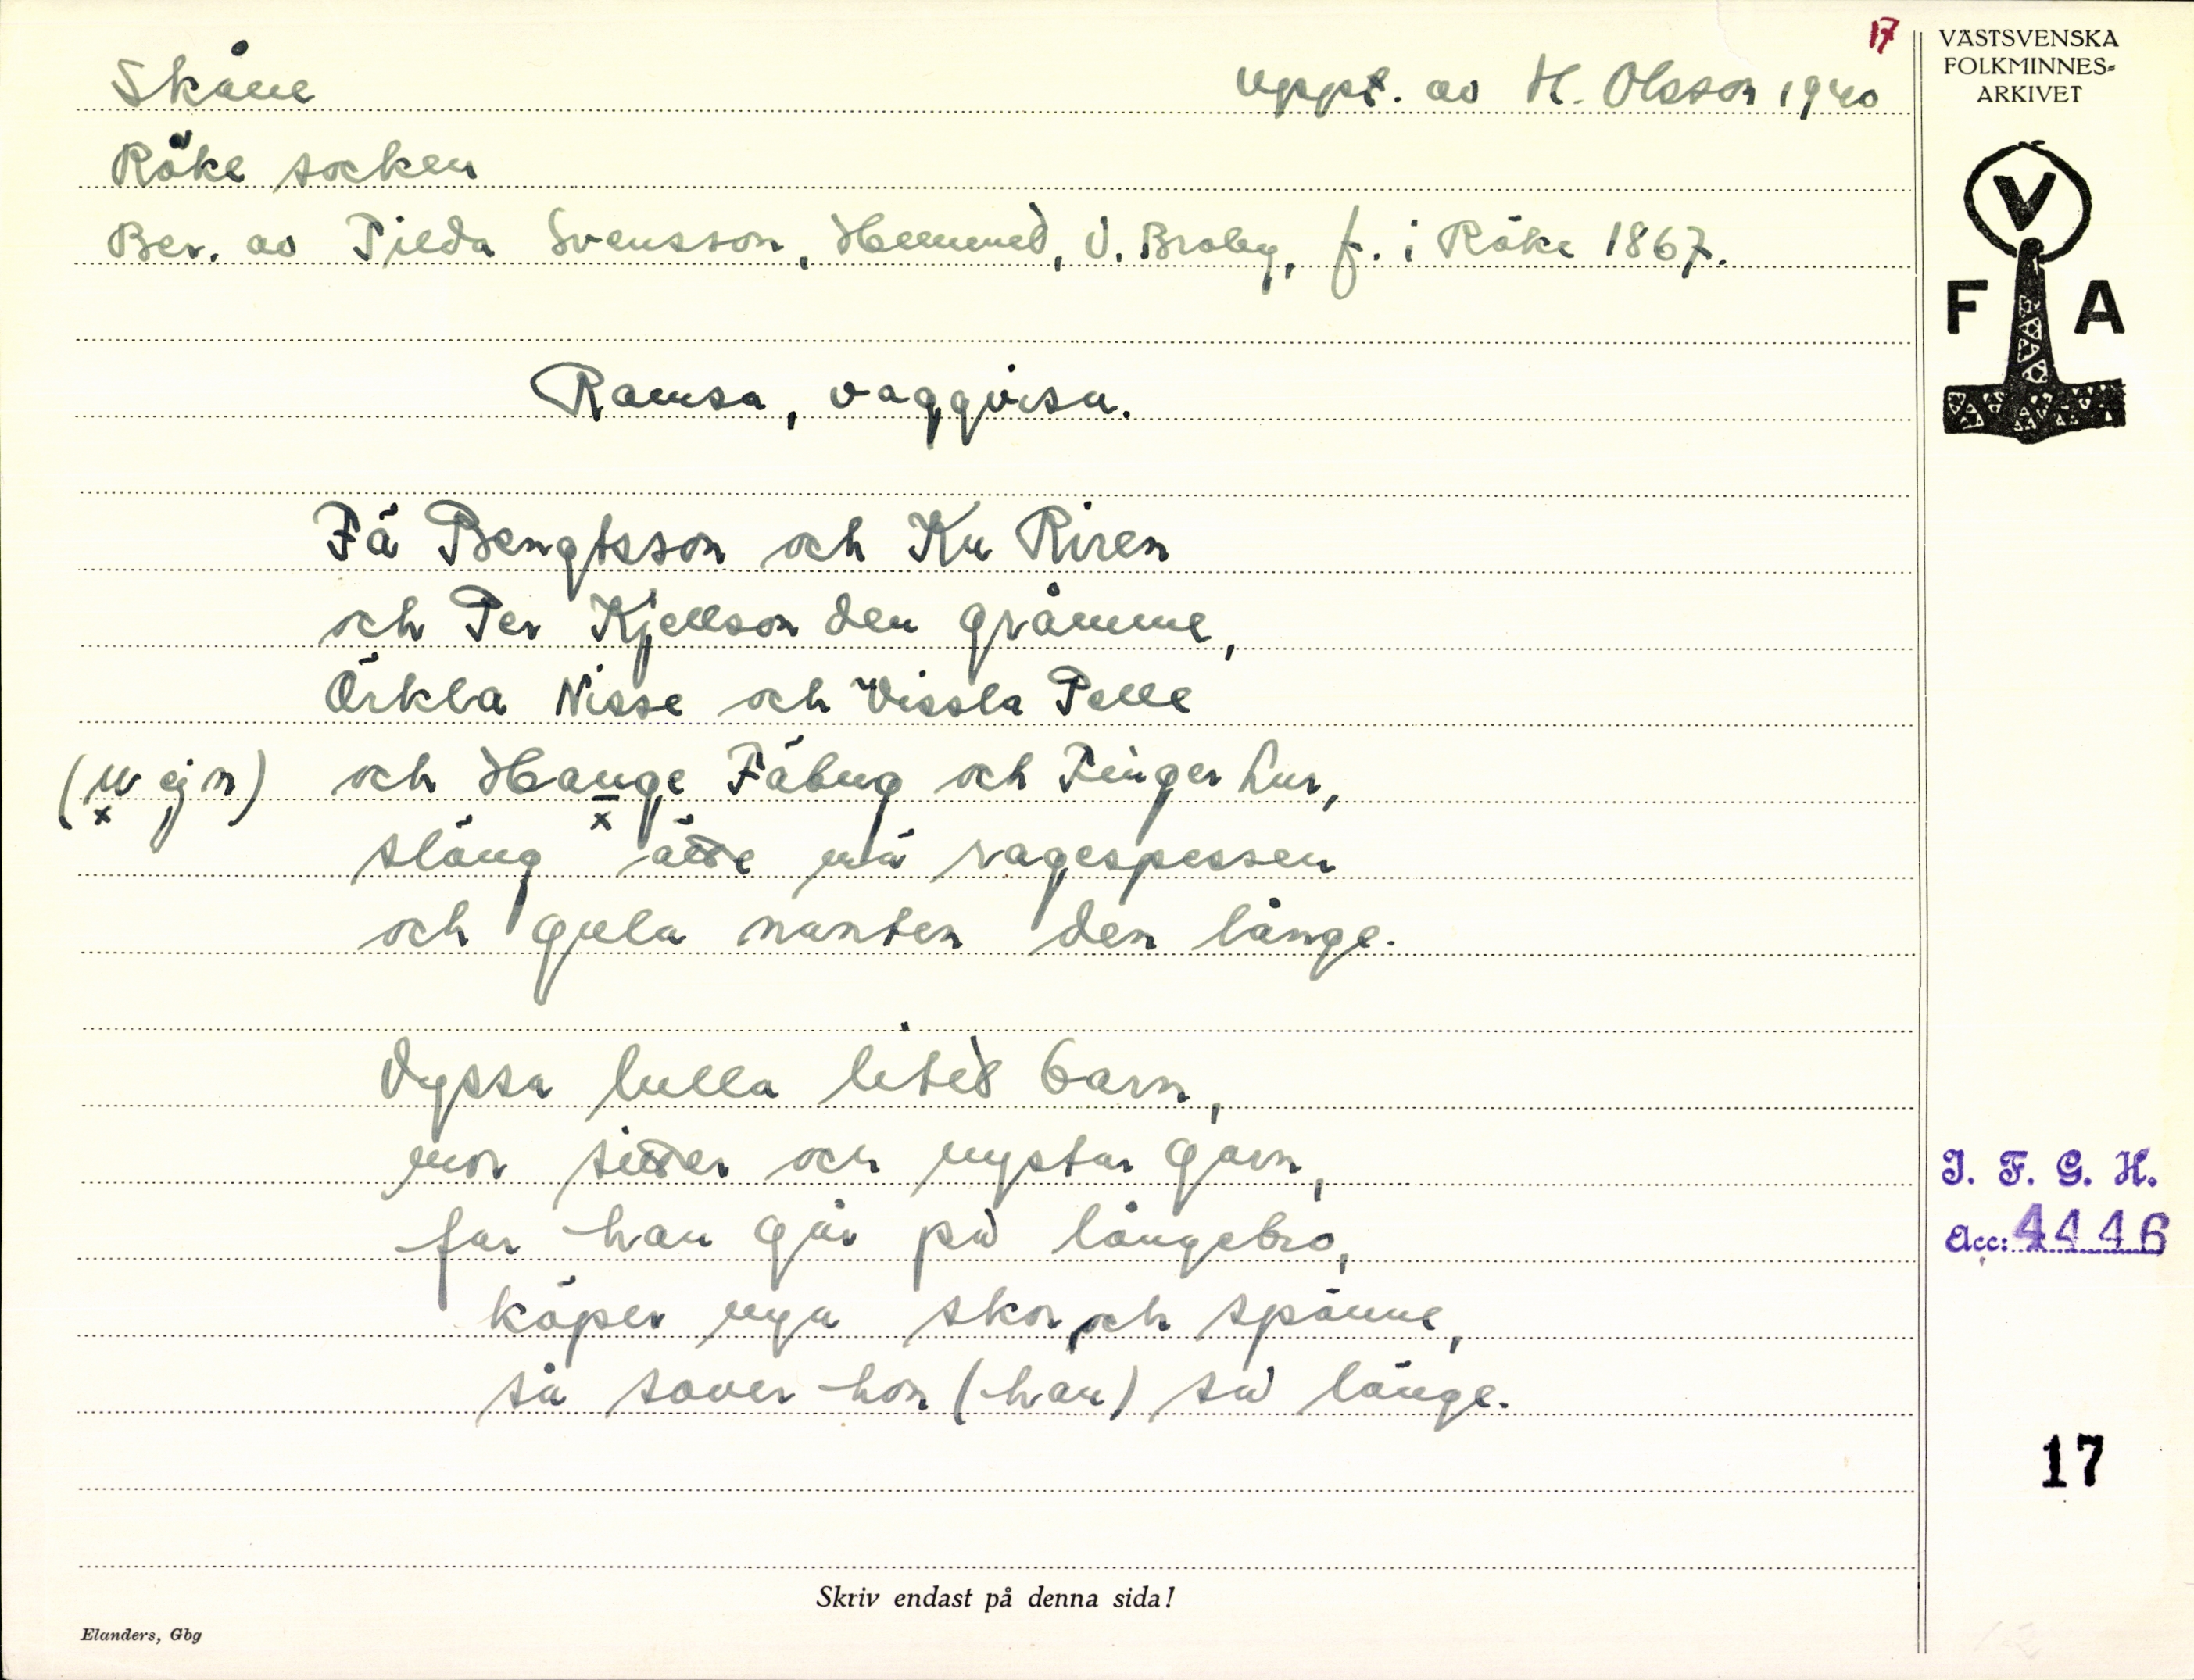 17
Skåne uppt. av H. Olsson 1940
Röke socken
Ber. av Tilda Svensson, Hemmed, V. Broby, f. i Röke 1867.
Ramsa, vaggvisa.
Fä Bengtsson och Ku Riren
och Per Kjellson den gråmme,
Örkla Nisse och Vissla Pelle
(u ej n) och Hauge Fäbug och Finger Lur,
släng må ragespessen
och gula nanten den långe.
Vyssa lulla lited barn,
mor sider och nystar garn,
far han går på långebro,
köper nya skor och spänne,
så sover hon (han) så länge.
VÄSTSVENSKA
FOLKMINNES-
ARKIVET
V
F A
I. F. G. H.
Acc: 4446
17
Skriv endast på denna sida!
Elanders, Gbg